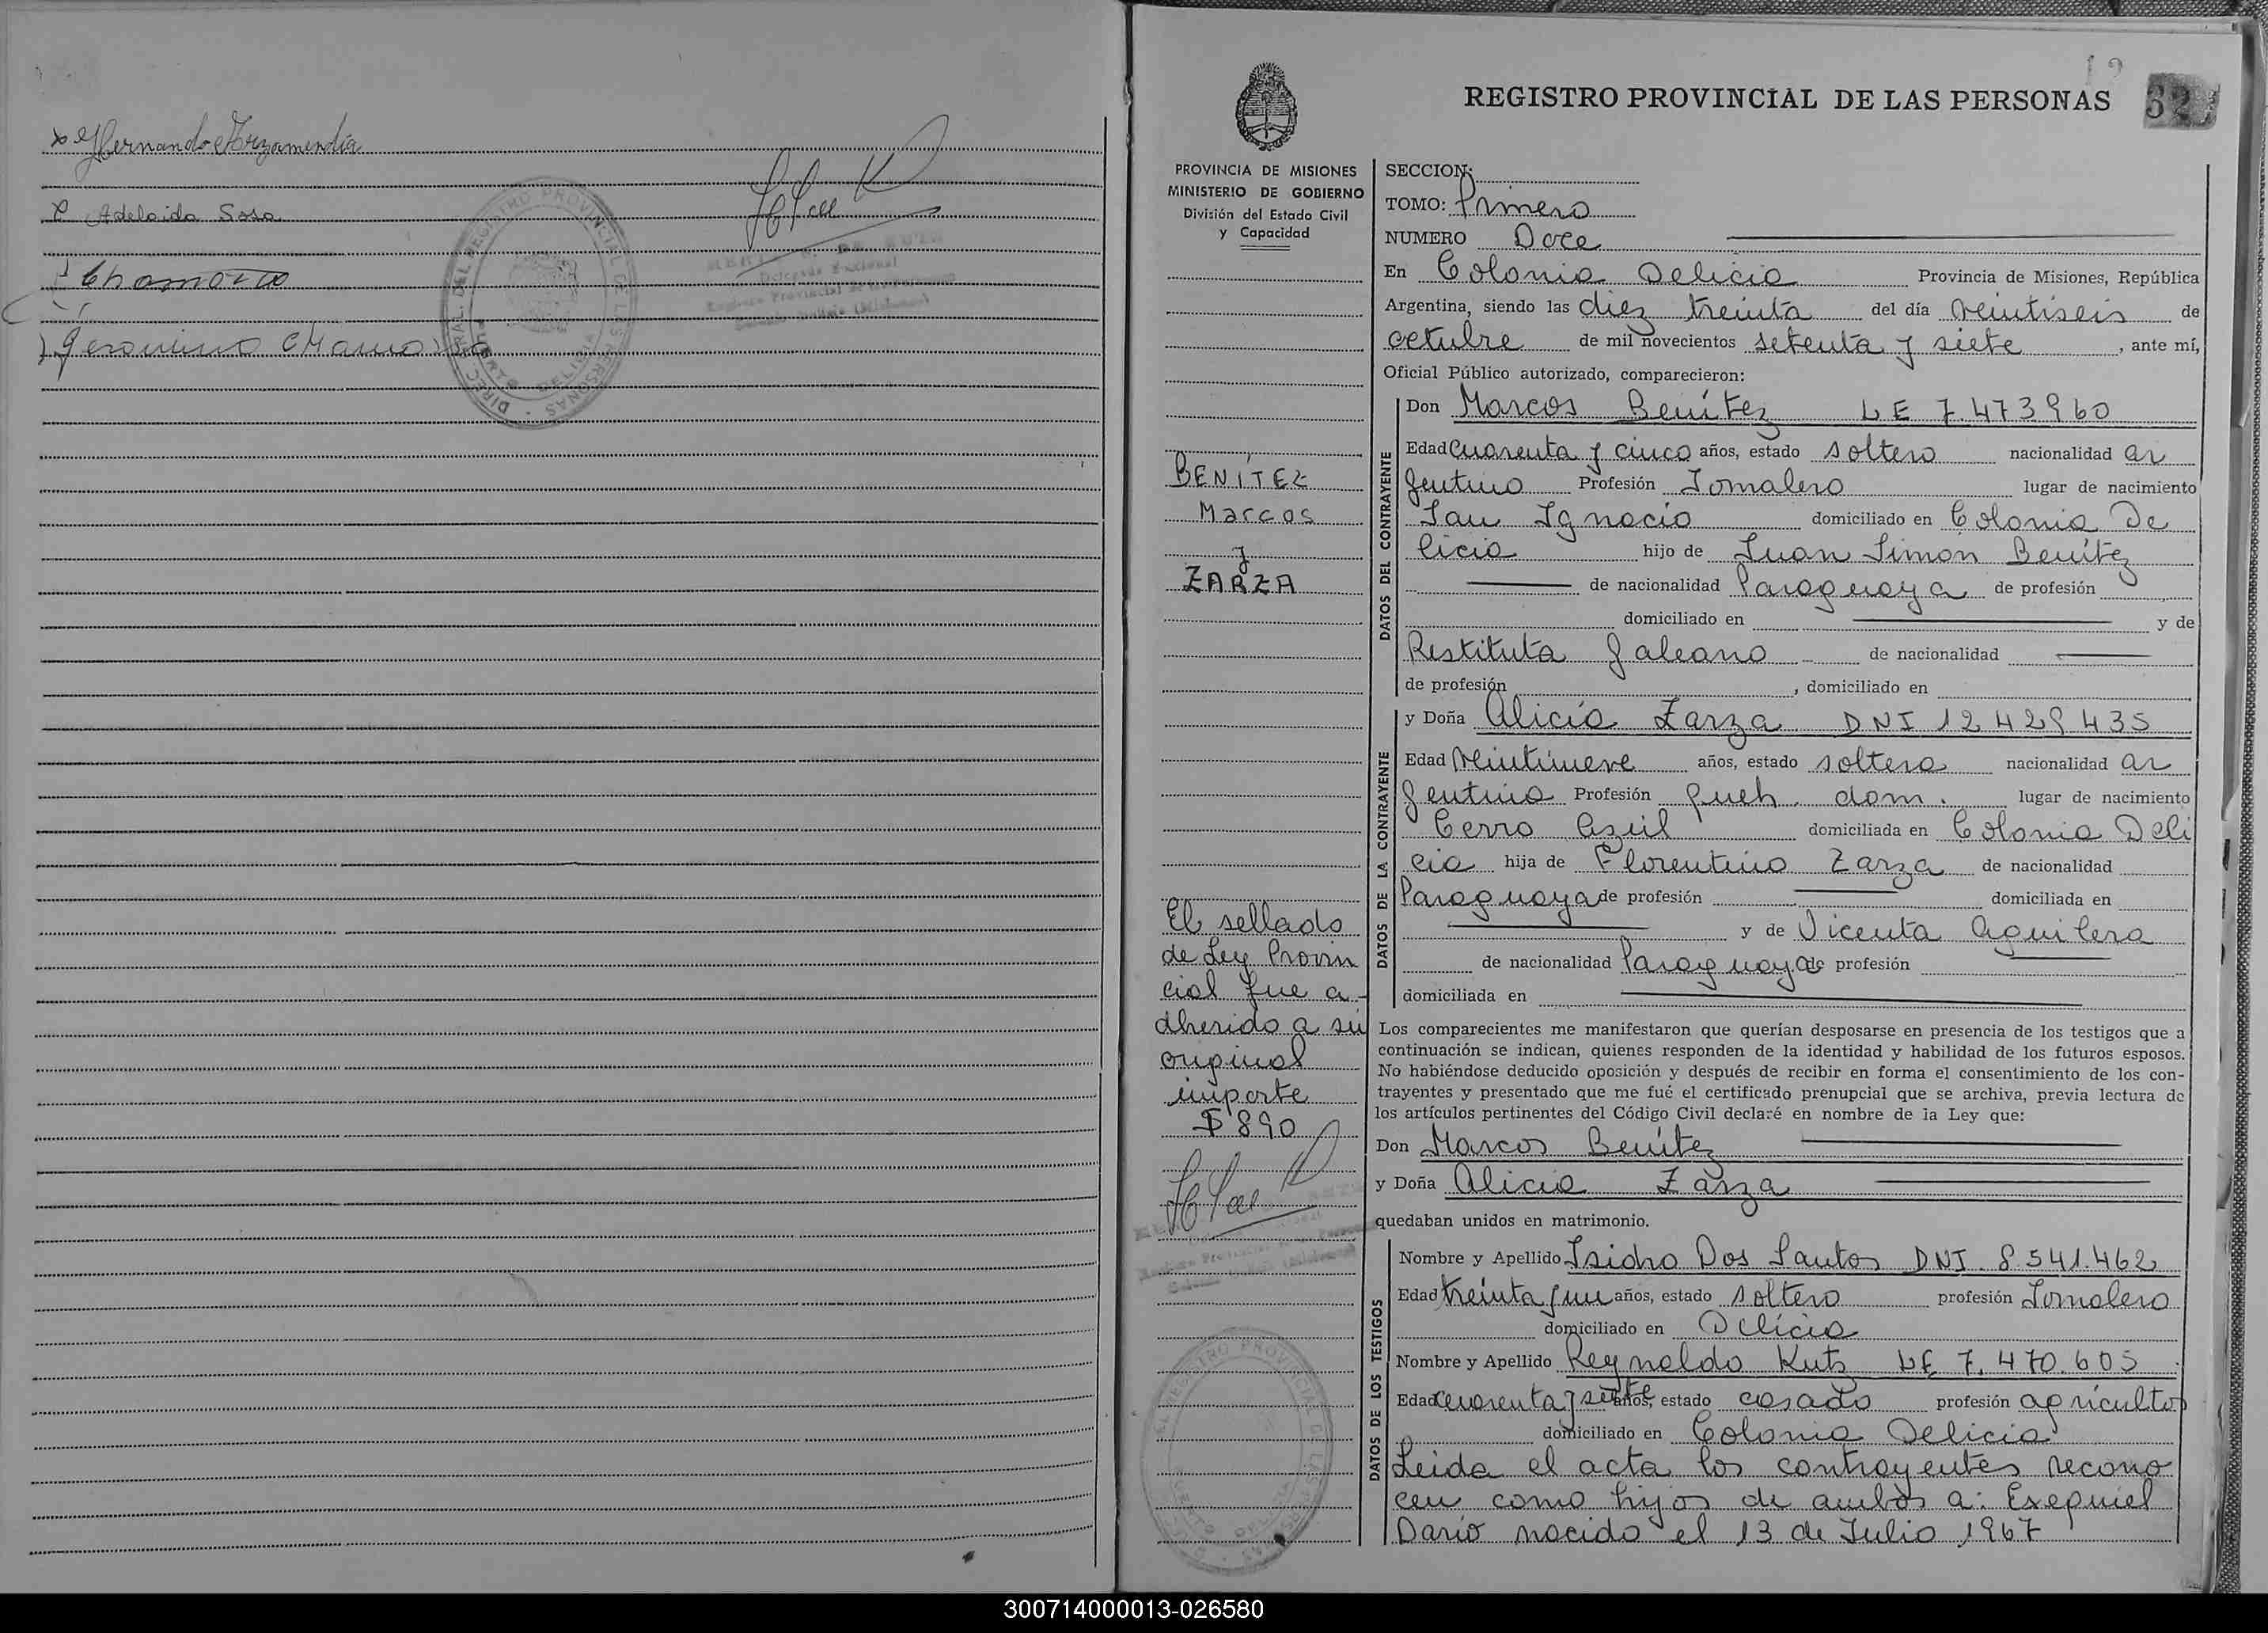 x Hernando Arzamendia
Adelaida Sosa
Chamorro
Geronimo Chamorro
DIREC. GRAL. DEL REGISTRO PROVINCIAL DE LAS PERSONAS
PUERTO DELICIA
12
REGISTRO PROVINCIAL DE LAS PERSONAS
32
PROVINCIA DE MISIONES
MINISTERIO DE GOBIERNO
División del Estado Civil
y Capacidad
BENÍTEZ
Marcos
y
ZARZA
El sellado
de Ley Provin
cial fue a-
dherido a su
original
importe
$ 890
SECCION:
TOMO: Primero
NUMERO Doce
En Colonia Delicia Provincia de Misiones, República
Argentina, siendo las diez treinta del día veintiseis de
octubre de mil novecientos setenta y siete, ante mí,
Oficial Público autorizado, comparecieron:
DATOS DEL CONTRAYENTE
Don Marcos Benítez LE 7.473960
Edad Cuarenta y cinco años, estado soltero nacionalidad ar
gentino Profesión Jornalero lugar de nacimiento
San Ignacio domiciliado en Colonia De
licia hijo de Juan Simón Benítez
de nacionalidad Paraguaya de profesión
domiciliado en y de
Restituta Galeano de nacionalidad
de profesión , domiciliado en
DATOS DE LA CONTRAYENTE
y Doña Alicia Zarza DNI 12429435
Edad Veintinueve años, estado soltera nacionalidad ar
gentina Profesión Queh. dom. lugar de nacimiento
Cerro Azúl domiciliada en Colonia Deli
cia hija de Florentino Zarza de nacionalidad
Paraguaya de profesión domiciliada en
y de Vicenta Aguilera
de nacionalidad Paraguaya de profesión
domiciliada en
Los comparecientes me manifestaron que querían desposarse en presencia de los testigos que a
continuación se indican, quienes responden de la identidad y habilidad de los futuros esposos.
No habiéndose deducido oposición y después de recibir en forma el consentimiento de los con-
trayentes y presentado que me fué el certificado prenupcial que se archiva, previa lectura de
los artículos pertinentes del Código Civil declaré en nombre de la Ley que:
Don Marcos Benítez
y Doña Alicia Zarza
quedaban unidos en matrimonio.
DATOS DE LOS TESTIGOS
Nombre y Apellido Isidro Dos Santos DNI. 8.541.462
Edad treinta y un años, estado soltero profesión Jornalero
domiciliado en Delicia
Nombre y Apellido Reynaldo Kutz LE 7.470.605
Edad cuarenta y siete años, estado casado profesión agricultor
domiciliado en Colonia Delicia
Leida el acta los contrayentes recono
cen como hijos de ambos a: Exequiel
Darío nacido el 13 de Julio 1967
300714000013-026580